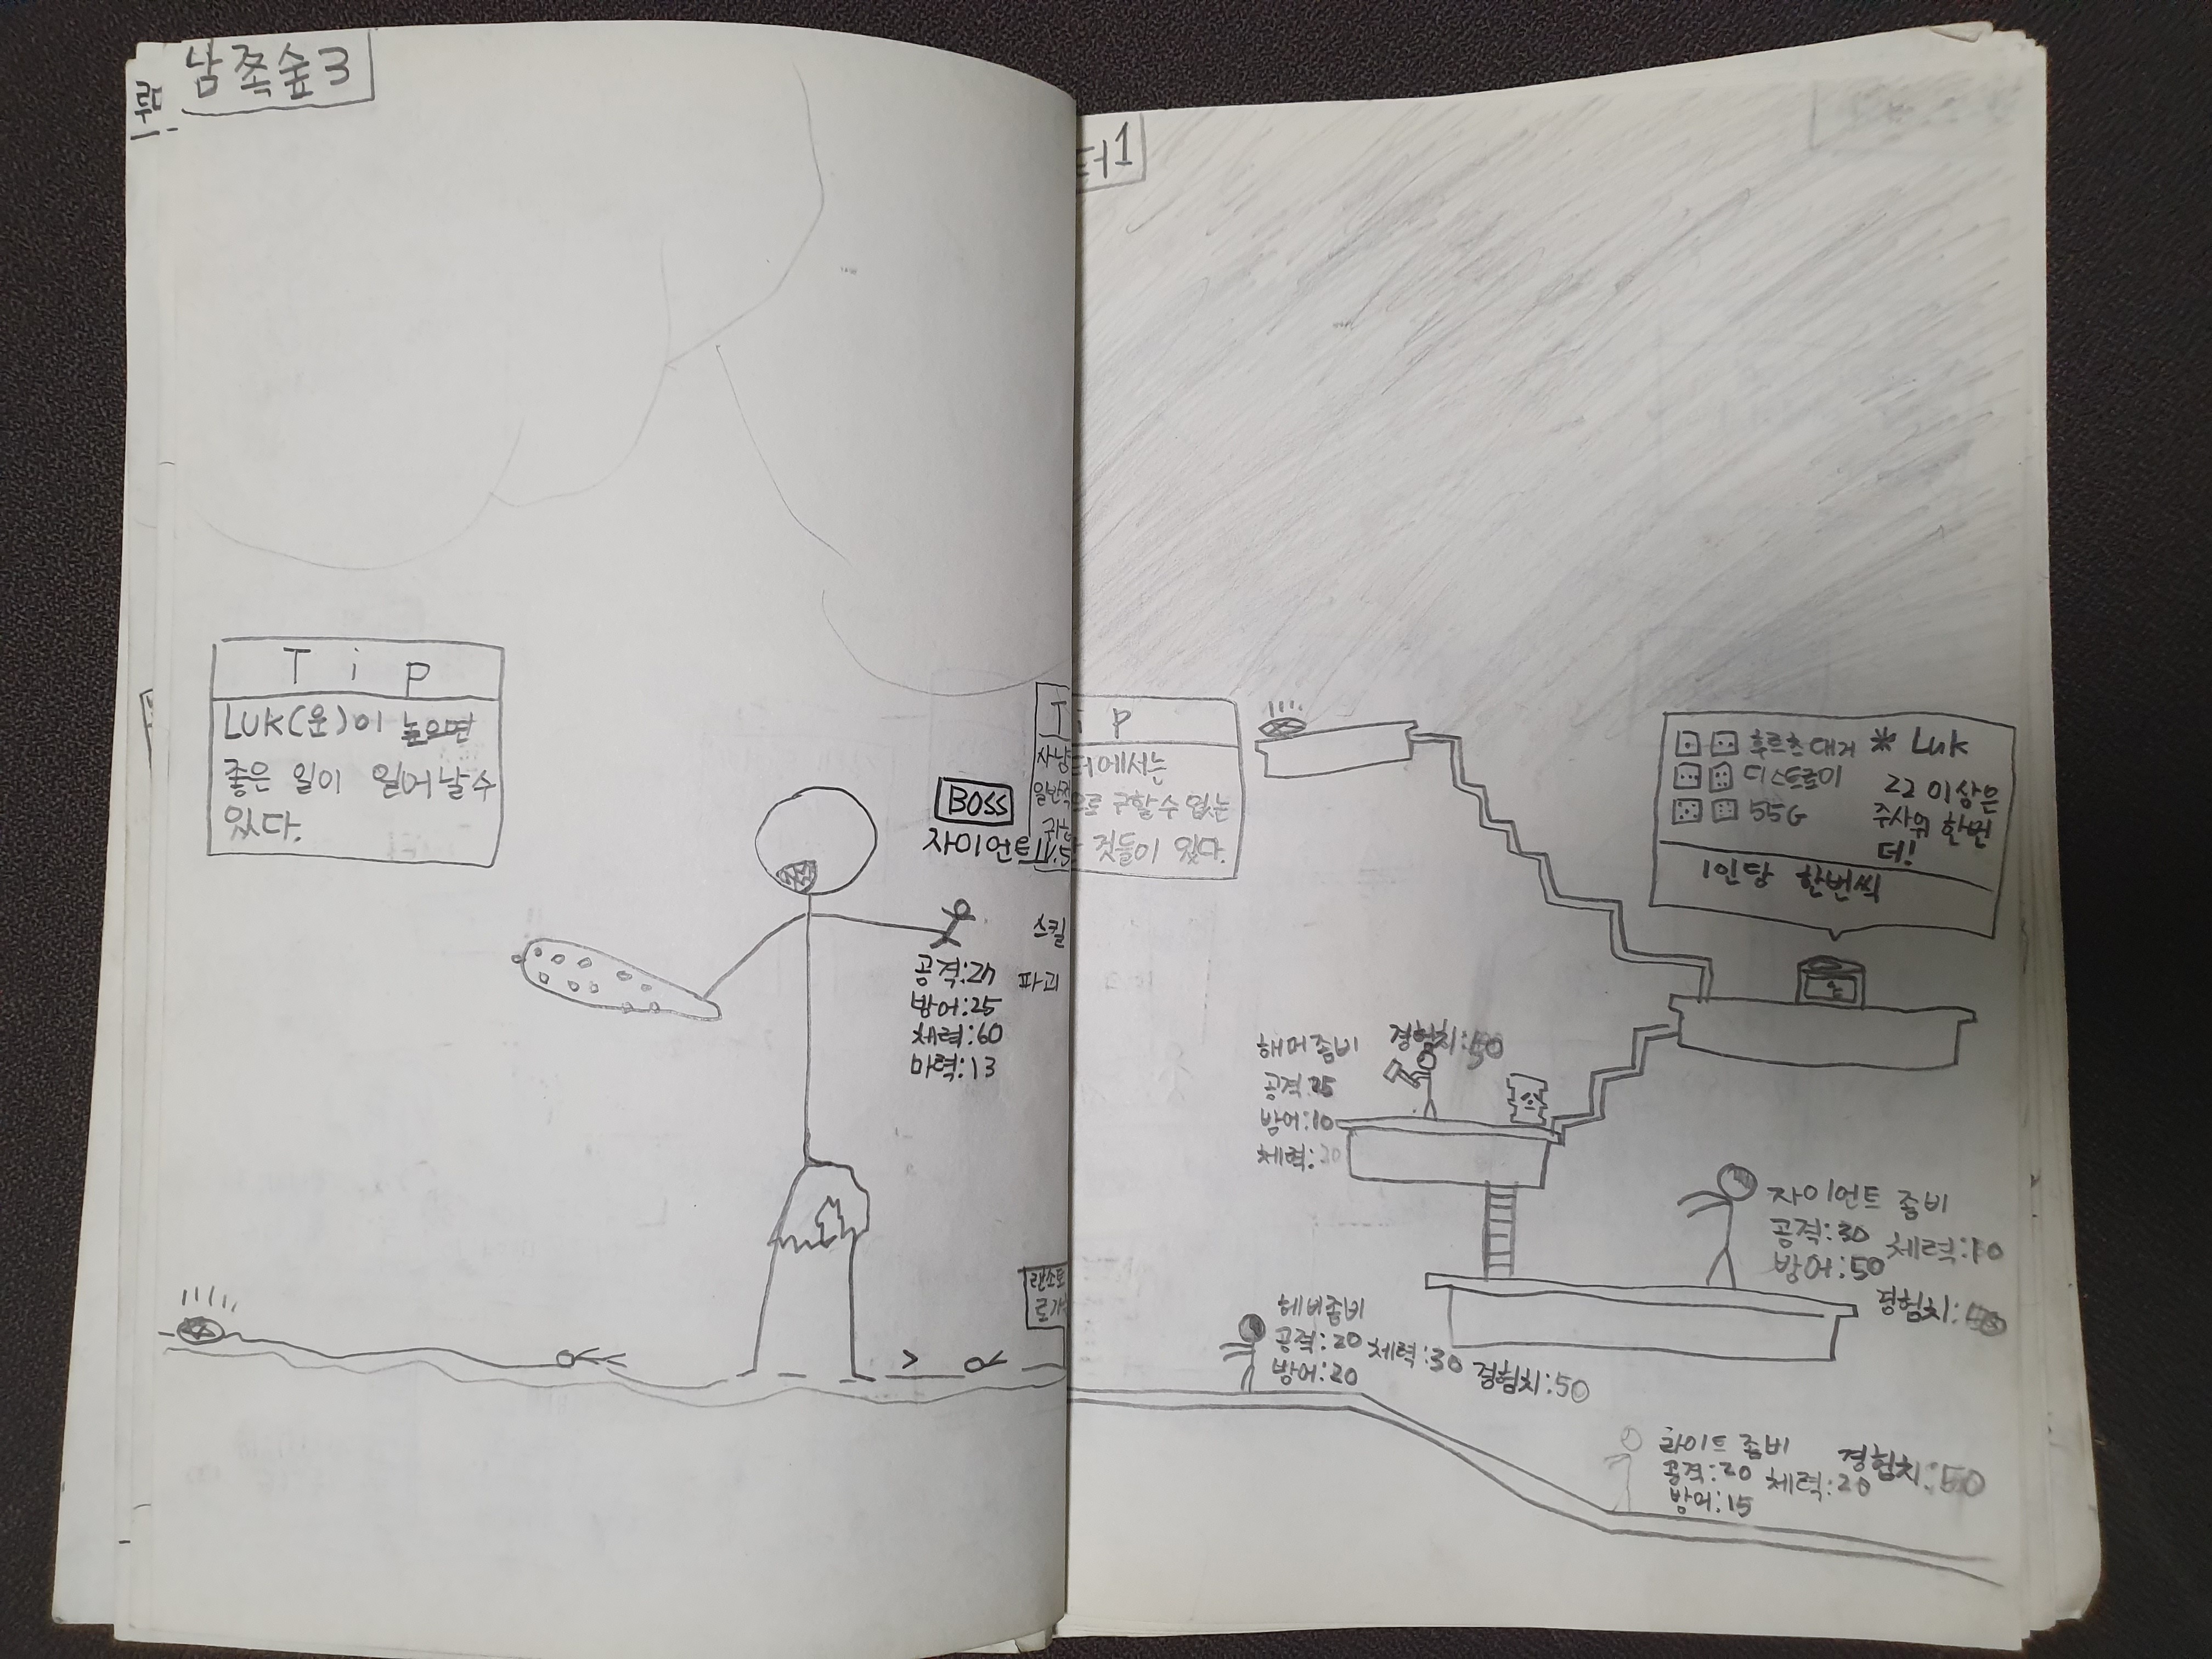 남쪽숲3
T i p
LUK(운)이 높으면
좋은 일이 일어날수
있다.
BOSS
자이언트 LV.5
공격:27
방어:25
체력:60
마력:13
스킬
파괴
터1
T i p
사냥터에서는
일반적으로 구할수 없는
것들이 있다.
후르츠대거
디스트로이
55G
* Luk
22 이상은
주사위 한번
더!
1인당 한번씩
해머좀비
경험치:50
공격:25
방어:10
체력:20
자이언트 좀비
공격:30
방어:50
체력:10
경험치:
헤비좀비
공격:20
방어:20
체력:30
경험치:50
라이트 좀비
공격:20
방어:15
체력:20
경험치:50